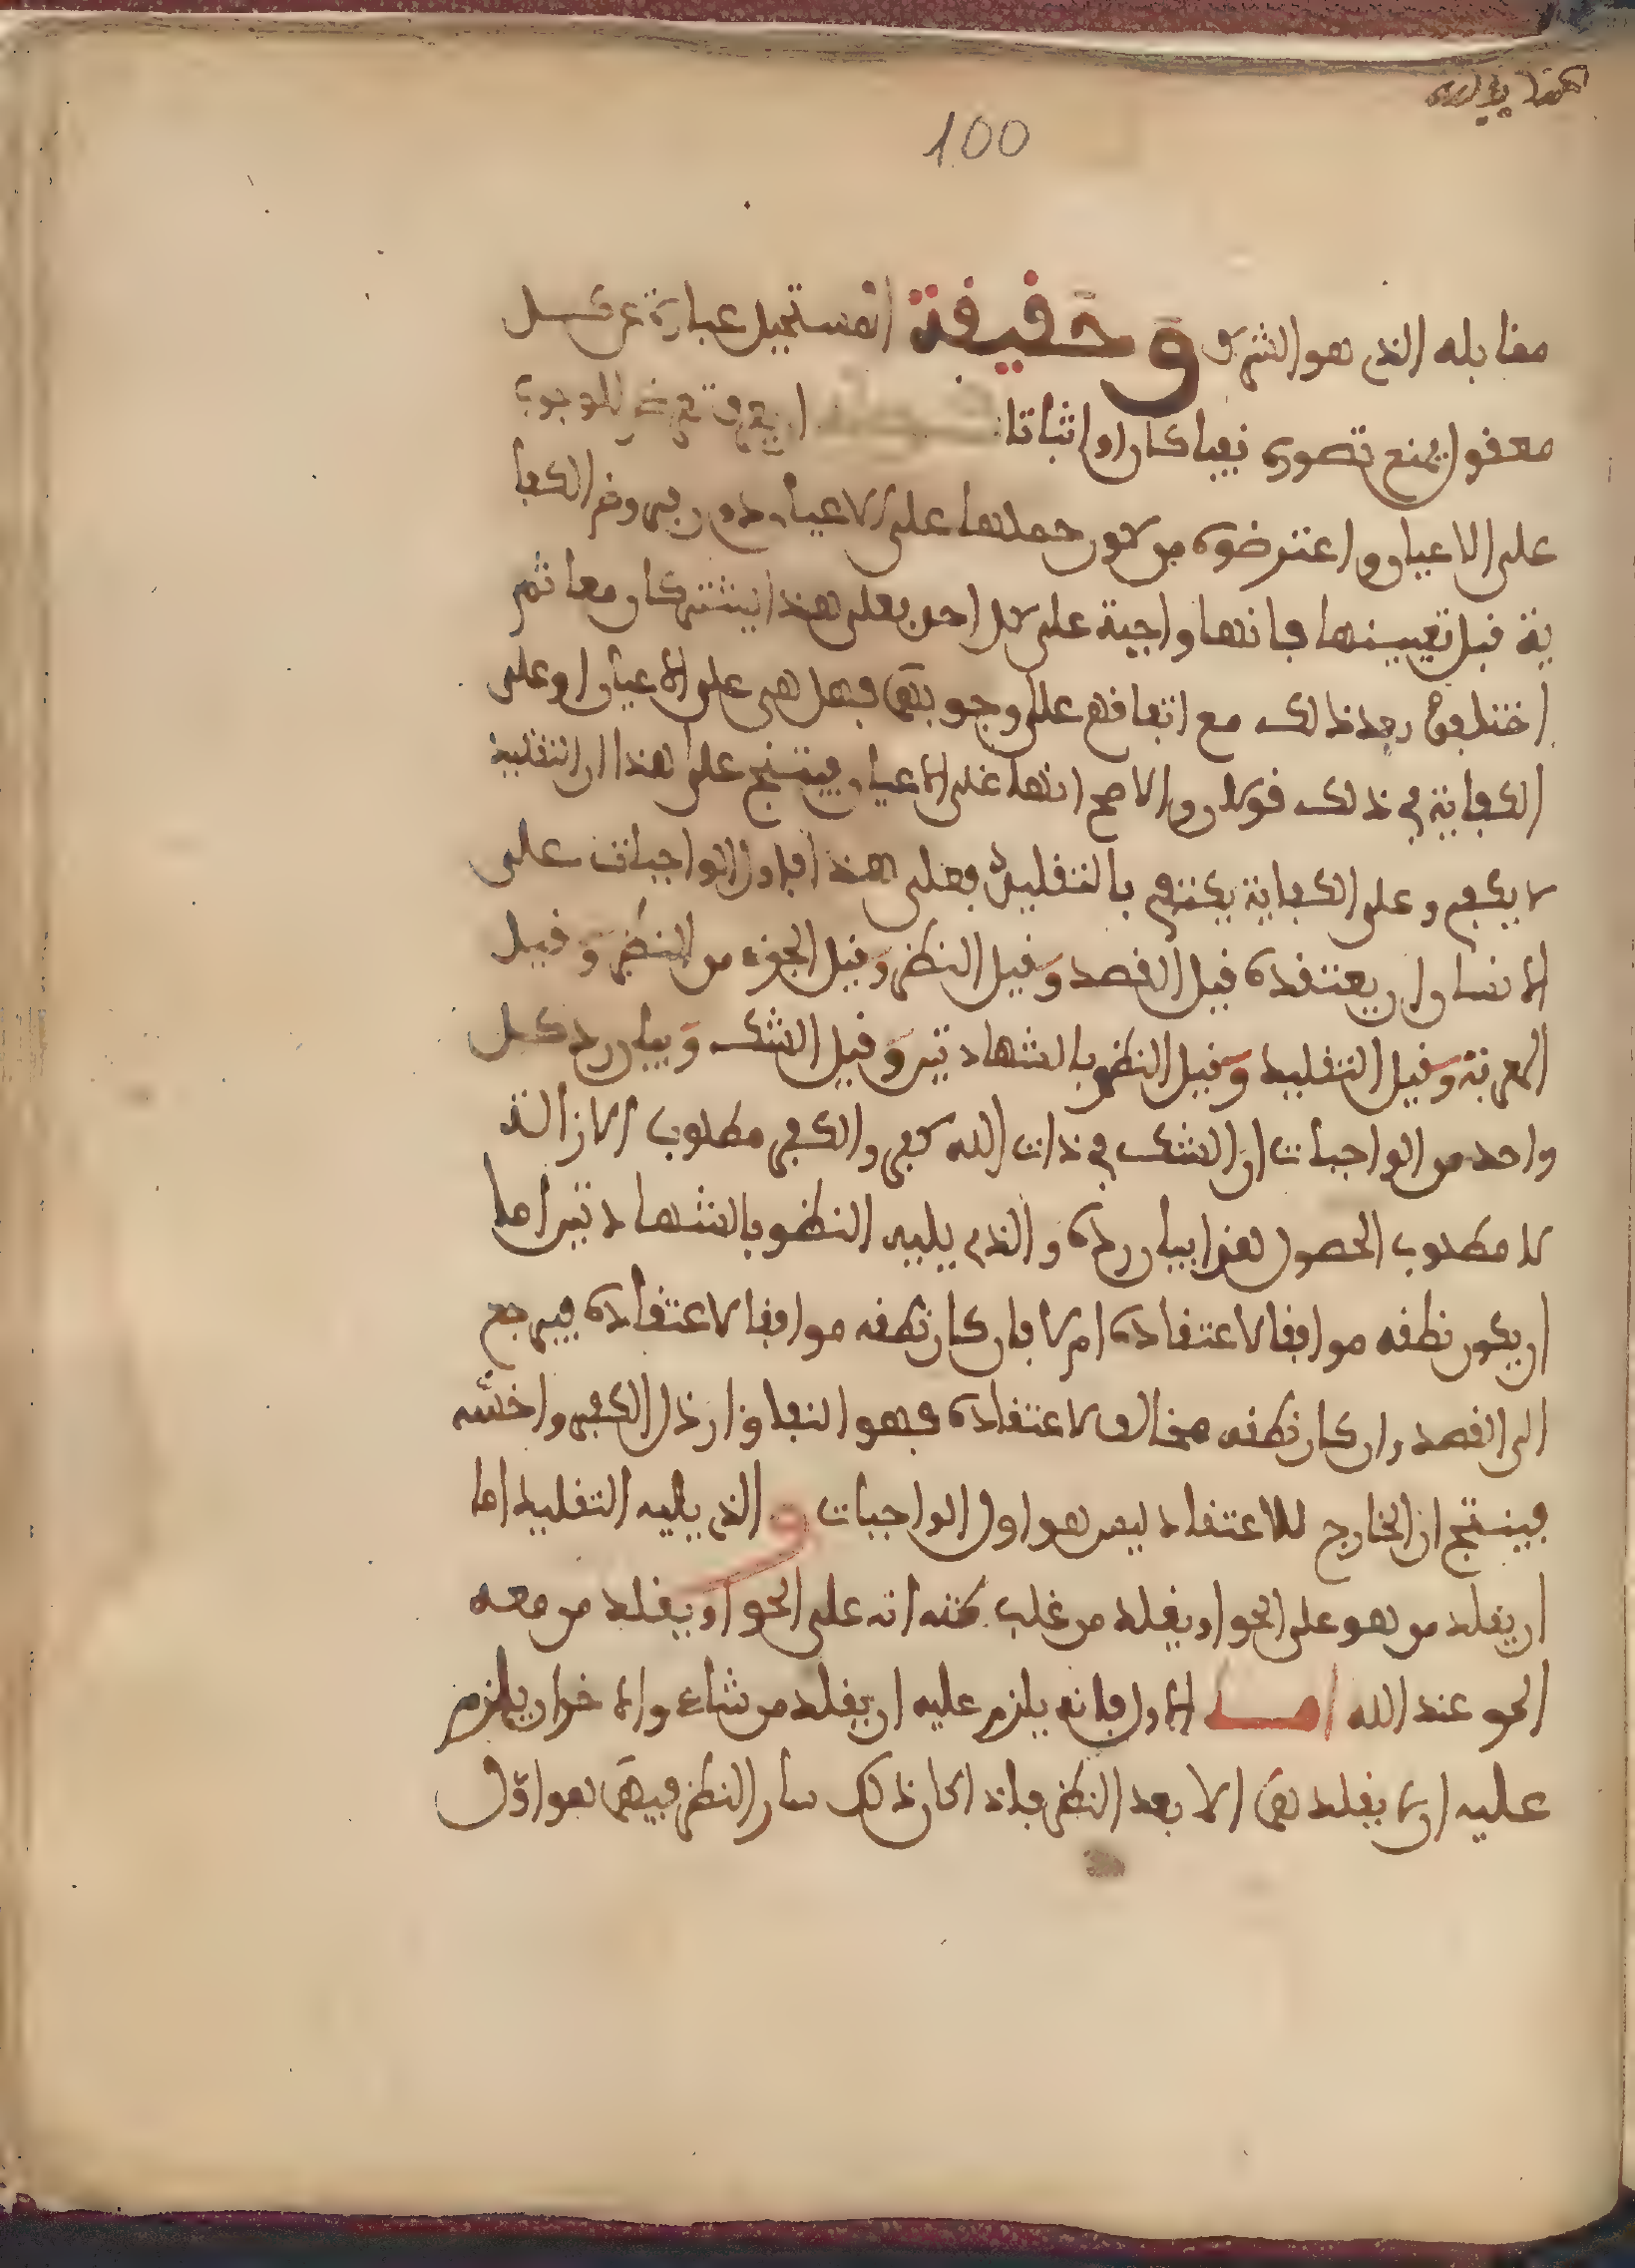 100
مقابله الذي هو الشرك وحقيقة المستحيل عبارة عن كل
معقول يمنع تصوره نفيا كان او اثباتا
على الاعيان واعترضوه من كون حملها على الاعيان دون فرض الكفا
ية قبل تعيينها فانها واجبة على كل احد فعلى هذا يشتركان معا ثم
اختلفوا بعد ذالك مع اتفاقهم على وجوبها فهل هي على الاعيان او على
الكفاية في ذلك قولان والاصح انها على الاعيان فينتج على هذا ان التقليد
لا يكفي وعلى الكفاية يكتفي بالتقليد فعلى هذا فاول الواجبات على
الانسان ان يعتقده قيل القصد وقيل النظر وقيل الجزء من النظر وقيل
المعرفة وقيل التقليد وقيل النطق بالشهادتين وقيل الشك وبيان رد كل
واحد من الواجبات ان الشك في ذات الله كفر والكفر مطلوب الازالة
لا مطلوب الحصول هذا بيان رده والذي يليه النطق بالشهادتين اما
ان يكون نطقه موافقا لاعتقاده ام لا فان كان نطقه موافقا لاعتقاده فيرجع
الى القصد وان كان نطقه مخالف لاعتقاده فهو النفاق ارذل الكفر واخسه
فينتج ان الخارج للاعتقاد ليس هو اول الواجبات والذي يليه التقليد اما
ان يقلد من هو على الحق او يقلد من غلب ظنه انه على الحق او يقلد من معه
الحق عند الله اما الاول فانه يلزم عليه ان يقلد من شاء والاخر ان يلزم
عليه ان لا يقلد الا بعد النظر فاذا كان ذلك سار النظر فيها هو اول